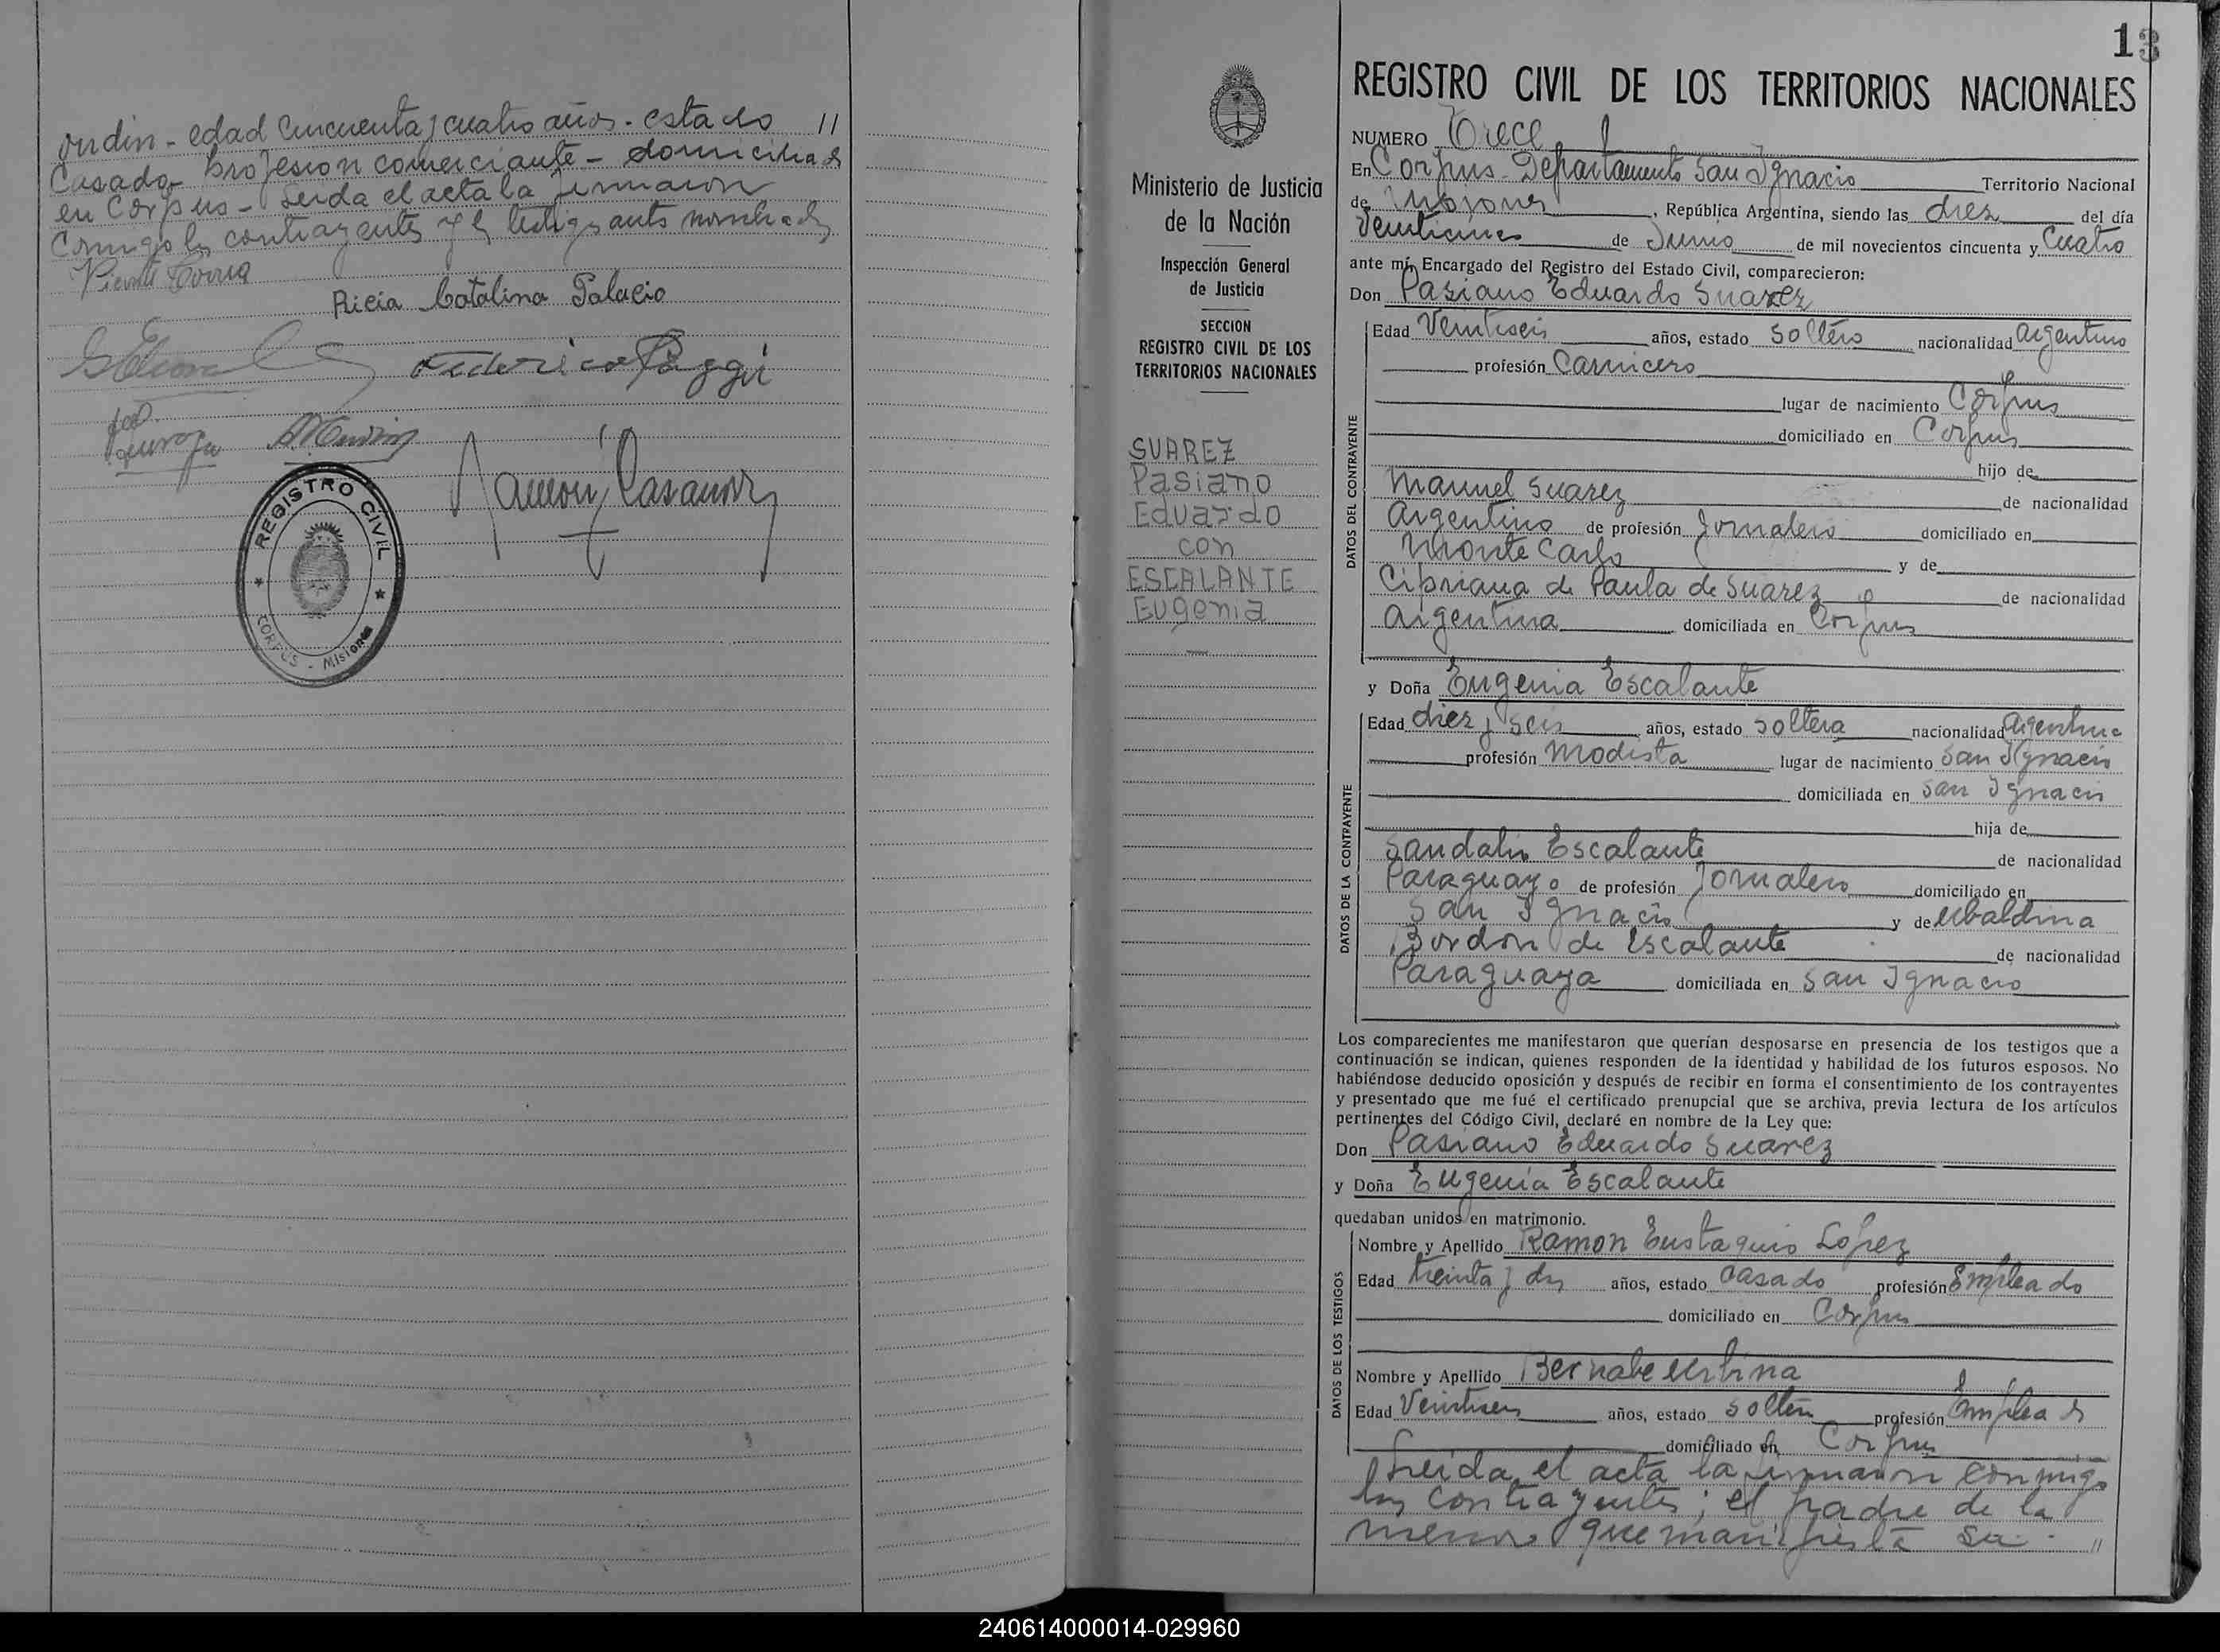 ordin - edad cincuenta y cuatro años - estado //
Casado - profesion comerciante - domiciliado
en Corpus - Leida el acta la firmaron
Conmigo los contrayentes y los testigos antes nombrados
Ricia Catalina Palacio
Federico Poggi
Ramón Casanova
REGISTRO CIVIL
CORPUS - Misiones
13
Ministerio de Justicia
de la Nación
Inspección General
de Justicia
SECCION
REGISTRO CIVIL DE LOS
TERRITORIOS NACIONALES
SUAREZ
Pasiano
Eduardo
con
ESCALANTE
Eugenia
REGISTRO CIVIL DE LOS TERRITORIOS NACIONALES
NUMERO Trece
En Corpus - Departamento San Ignacio Territorio Nacional
de Misiones, República Argentina, siendo las diez del día
de Junio de mil novecientos cincuenta y Cuatro
ante mí, Encargado del Registro del Estado Civil, comparecieron:
Don Pasiano Eduardo Suarez
DATOS DEL CONTRAYENTE
Edad Veintiseis años, estado soltero nacionalidad argentino
profesión Carnicero
lugar de nacimiento Corpus
domiciliado en Corpus
hijo de
Manuel Suarez de nacionalidad
Argentino de profesión Jornalero domiciliado en
Monte Carlo y de
Cipriana de Paula de Suarez de nacionalidad
Argentina domiciliada en Corpus
y Doña Eugenia Escalante
DATOS DE LA CONTRAYENTE
Edad diez y seis años, estado soltera nacionalidad Argentina
profesión Modista lugar de nacimiento San Ignacio
domiciliada en San Ignacio
hija de
Sandalio Escalante de nacionalidad
Paraguayo de profesión Jornalero domiciliado en
San Ignacio y de Ubaldina
Bordon de Escalante de nacionalidad
Paraguaya domiciliada en San Ignacio
Los comparecientes me manifestaron que querían desposarse en presencia de los testigos que a
continuación se indican, quienes responden de la identidad y habilidad de los futuros esposos. No
habiéndose deducido oposición y después de recibir en forma el consentimiento de los contrayentes
y presentado que me fué el certificado prenupcial que se archiva, previa lectura de los artículos
pertinentes del Código Civil, declaré en nombre de la Ley que:
Don Pasiano Eduardo Suarez
y Doña Eugenia Escalante
quedaban unidos en matrimonio.
DATOS DE LOS TESTIGOS
Nombre y Apellido Ramon Eustaquio Lopez
Edad treinta y dos años, estado casado profesión Empleado
domiciliado en Corpus
Nombre y Apellido Bernabe Urbina
Edad Veintiseis años, estado soltero profesión Empleado
domiciliado en Corpus
Leida el acta la firmaron conmigo
los contrayentes; el padre de la
menor que manifiesta su //
240614000014-029960